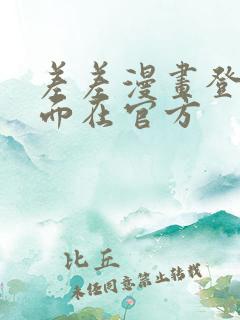 差差漫畫登
而在官方
比丘
未经同意禁止转载